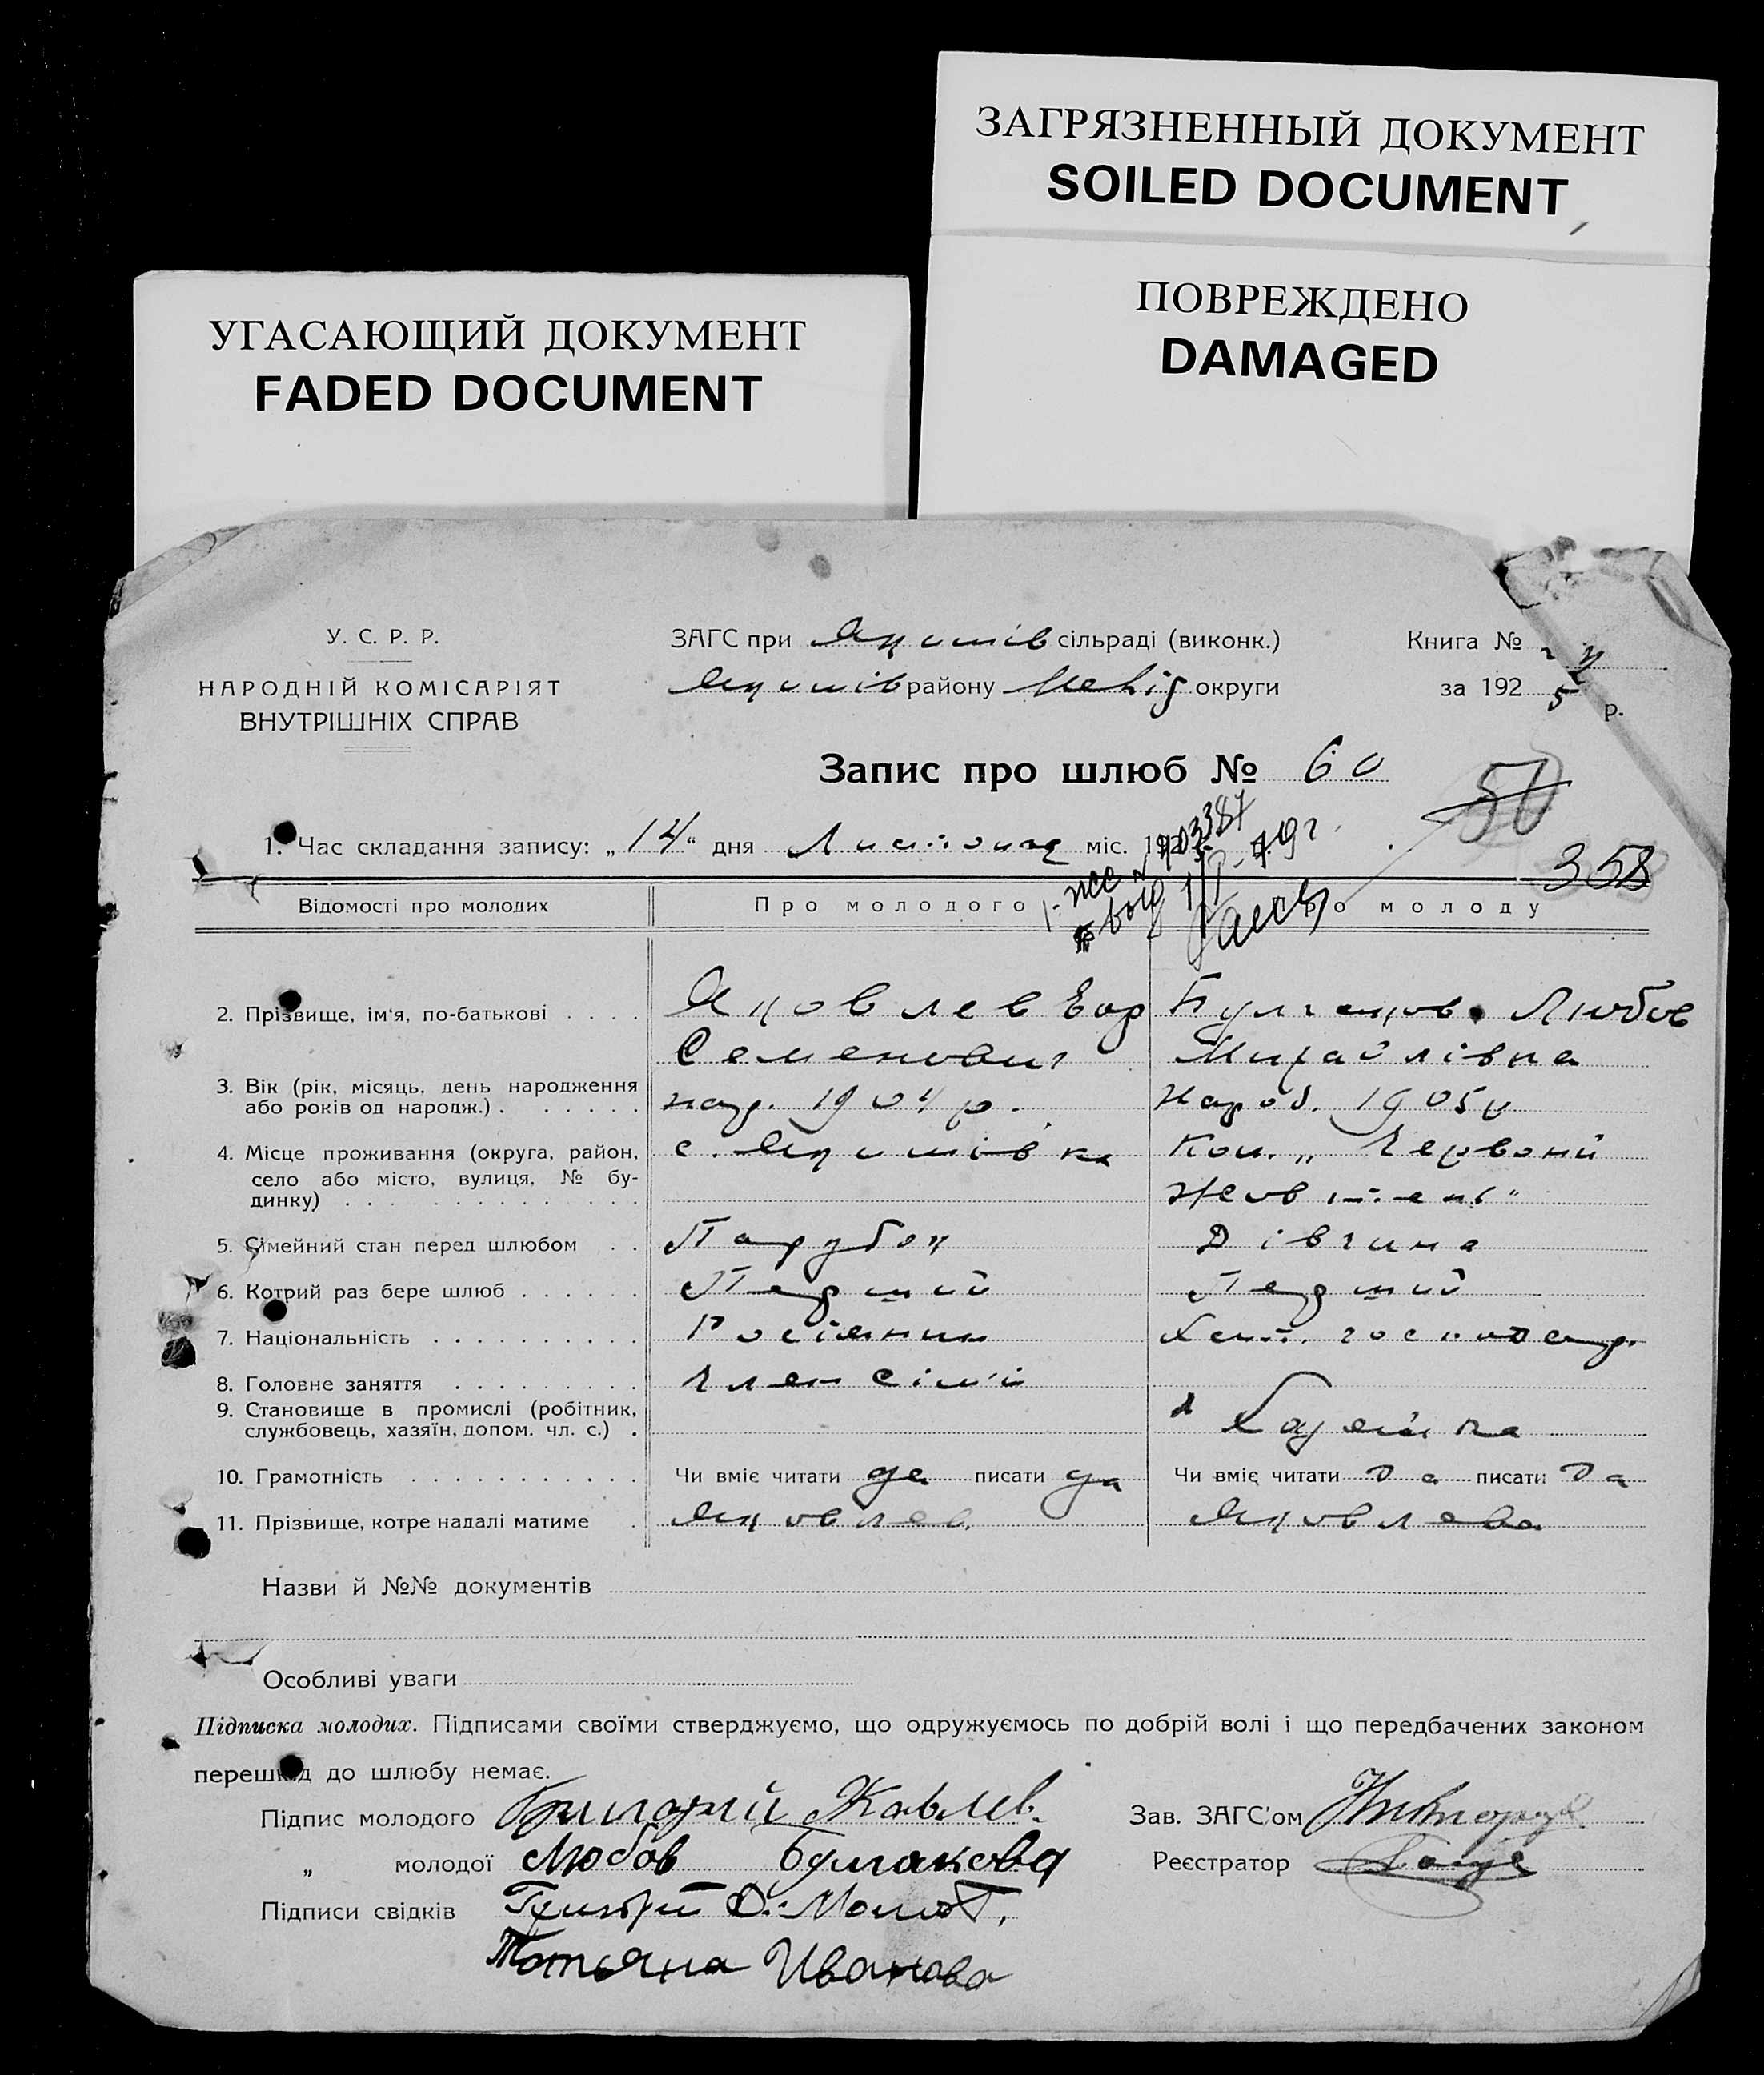 ЗАГРЯЗНЕННЫЙ ДОКУМЕНТ
SOILED DOCUMENT
ПОВРЕЖДЕНО
DAMAGED
УГАСАЮЩИЙ ДОКУМЕНТ
FADED DOCUMENT
У. С. Р. Р.
НАРОДНІЙ КОМІСАРІЯТ
ВНУТРІШНІХ СПРАВ
ЗАГС при Якимів сільраді (виконк.)
Якимів району Меліт округи
Книга №
за 192 5 р.
Запис про шлюб № 60
50
358
1. Час складання запису: „14“ дня Листопад міс. 192
Відомості про молодих Про молодого Про молоду
2. Прізвище, ім'я, по-батькові . . . . Яковлев Егор Булгаков. Любов
Семенович Михайлівна
3. Вік (рік, місяць, день народження або років од народж.) . . . . . . нар. 1904 р. Народ. 1905
4. Місце проживання (округа, район, село або місто, вулиця, № будинку) . . . с. Якимівка Ком. „Червоний
Жовтень“
5. Сімейний стан перед шлюбом . . Парубок Дівчина
6. Котрий раз бере шлюб . . . . . . Перший Перший
7. Національність . . . . . . . . . . Росіянин Хат. господар.
8. Головне заняття . . . . . . . . . Член сім'ї
9. Становище в промислі (робітник, службовець, хазяїн, допом. чл. с.) . Хазяйка
10. Грамотність . . . . . . . . . . . Чи вміє читати да писати да Чи вміє читати да писати да
11. Прізвище, котре надалі матиме . Яковлев Яковлева
Назви й №№ документів
Особливі уваги
Підписка молодих. Підписами своїми стверджуємо, що одружуємось по добрій волі і що передбачених законом
перешкод до шлюбу немає.
Підпис молодого Григорий Яковлев. Зав. ЗАГС'ом
„ молодої Любов Булгакова Реєстратор
Підписи свідків
Татьяна Иванова